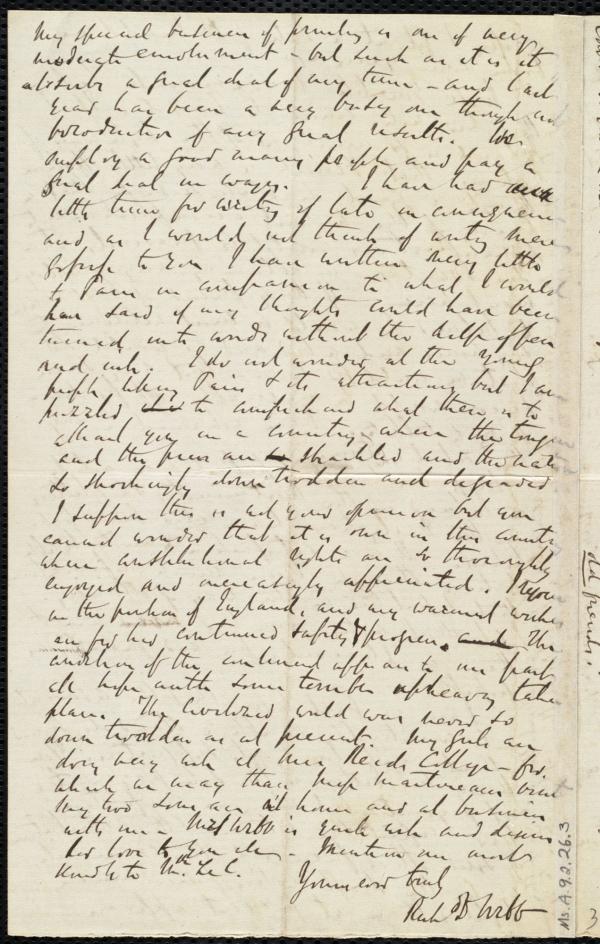 My special business of printing is one of very
moderate emolument - but such as it is it
absorbs a great deal of my time - and last
year has been a very busy one though not
productive of any great results. We
employ a good many people and pay a
great deal in wages. I have had
little time for writing of late in consequence
and as I would not think of writing mere
gossip to you I have written very little
to Paris in comparison to what I would
have said if my thoughts could have been
turned into words without the help of pen
and ink. I do not wonder at the young
people liking Paris & its attractions but I am
puzzled to comprehend what there is to
attract you in a country where the tongue
and the press are so shackled and the nation
so shockingly down trodden and degraded
I suppose this is not your opinion but you
cannot wonder that it is ours in this country
where constitutional rights are so thoroughly
enjoyed and increasingly appreciated. I rejoice
in the position of England, and my warmest wishes
are for her continued safety & progress. The
condition of the continent appears to me past
all hope until some terrible upheaving takes
place. The civilized world was never so
down trodden as at present. My girls are
doing very well at Mrs Reid's College - for
which we may thank Miss Martineau's
My two sons are at home and at business
with me - Mrs Webb is quite well and desires
her love to you - Mention me most
kindly to Mr. Le C.
Yours ever truly
Rich D Webb
old friends.
Ms.A.9.2.26.3
3